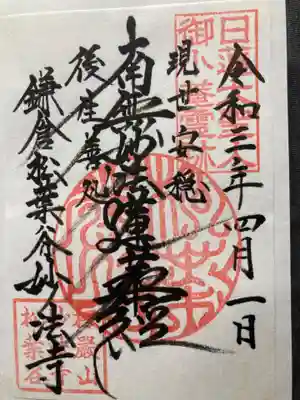 令和三年四月一日
現世安穏
南無妙法蓮華経
後生善処
鎌倉松葉谷妙法寺
日蓮大聖人
御小菴霊跡
松葉谷